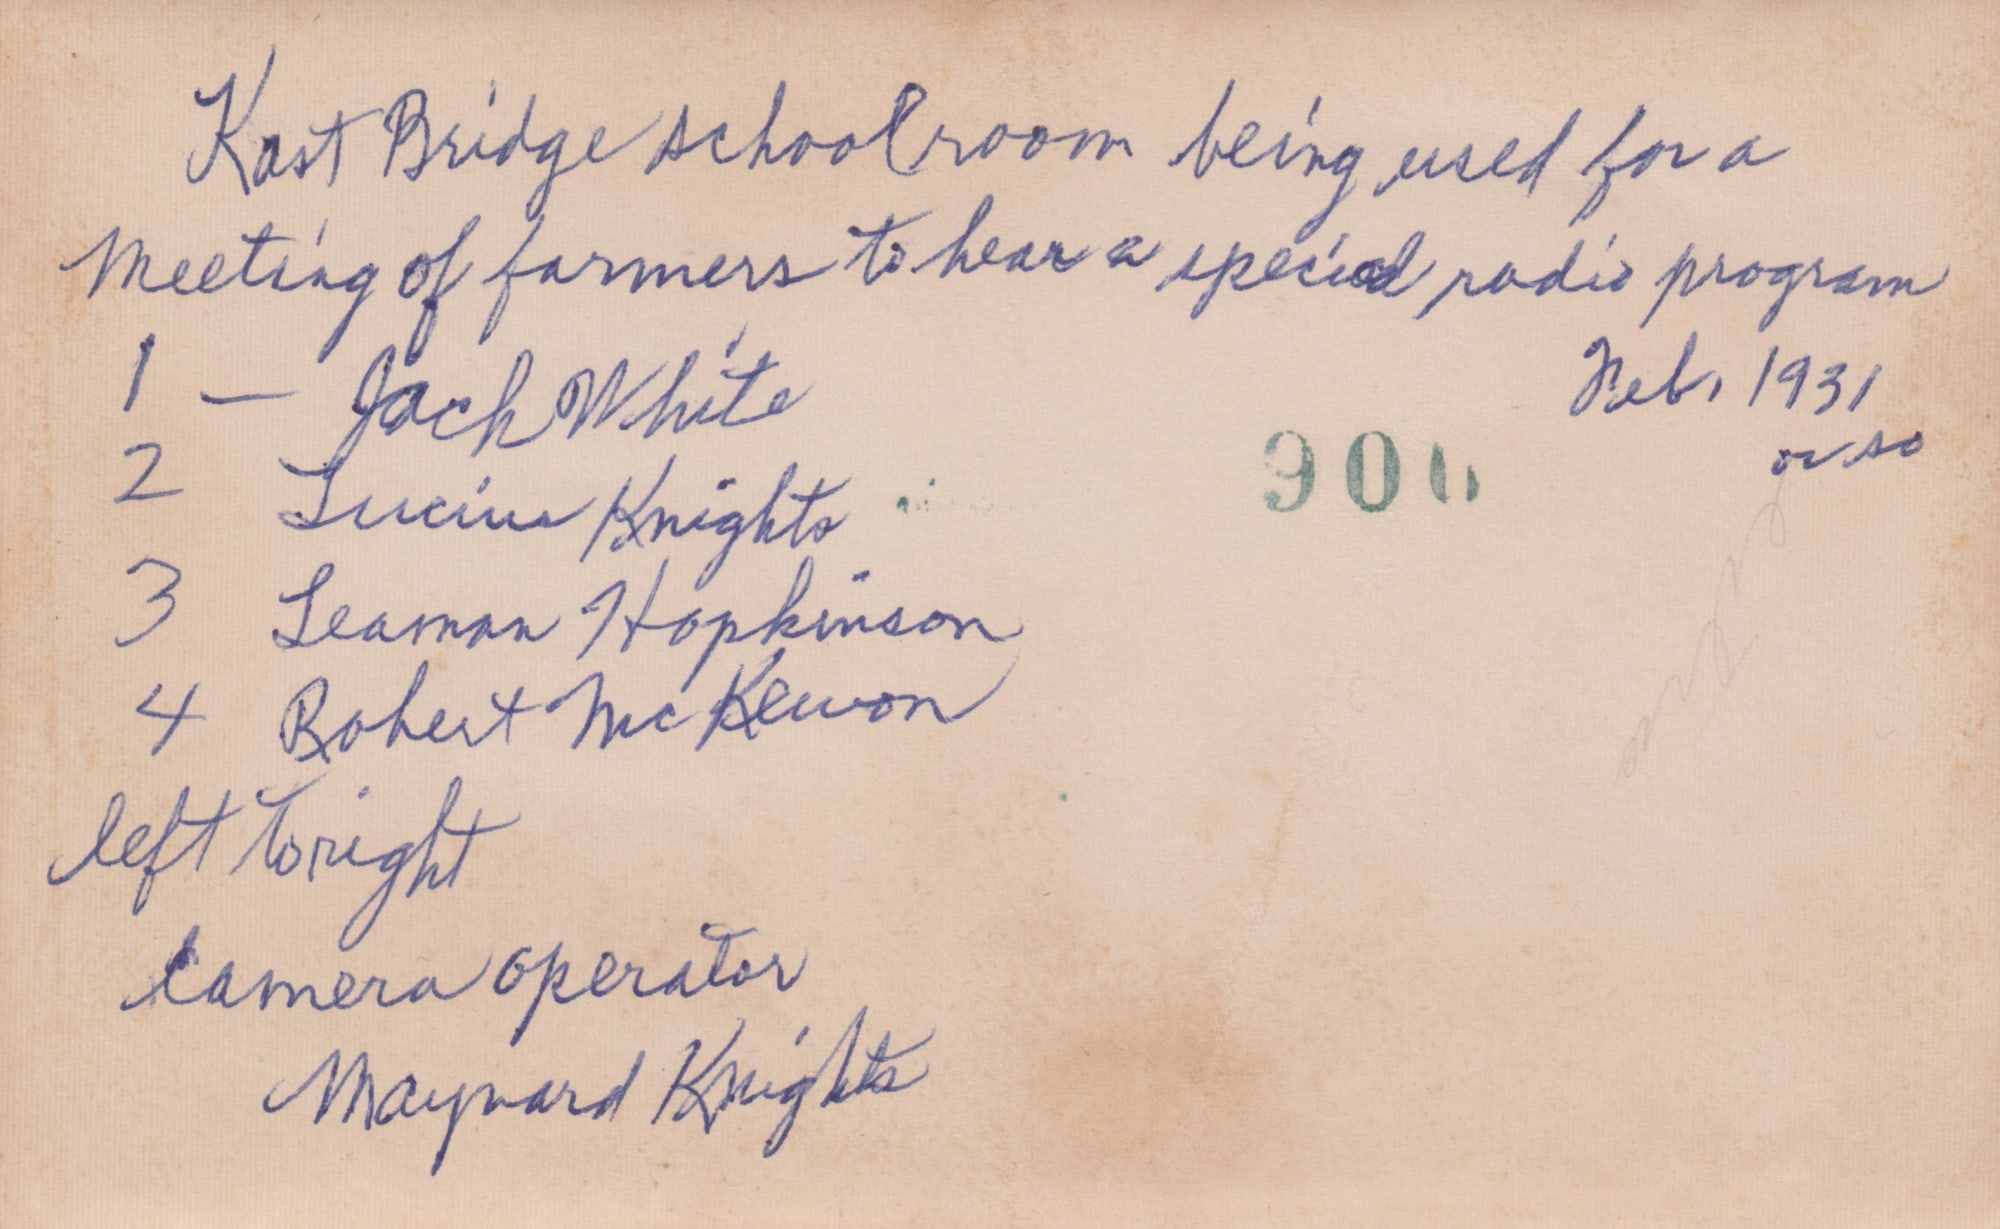 Kast Bridge school room being used for a
Meeting of farmers to hear a special radio program
Feb, 1931
or so
1 — Jack White
2 Lucius Knights
900
3 Leaman Hopkinson
4 Robert McKewon
left to right
Camera operator
Maynard Knights